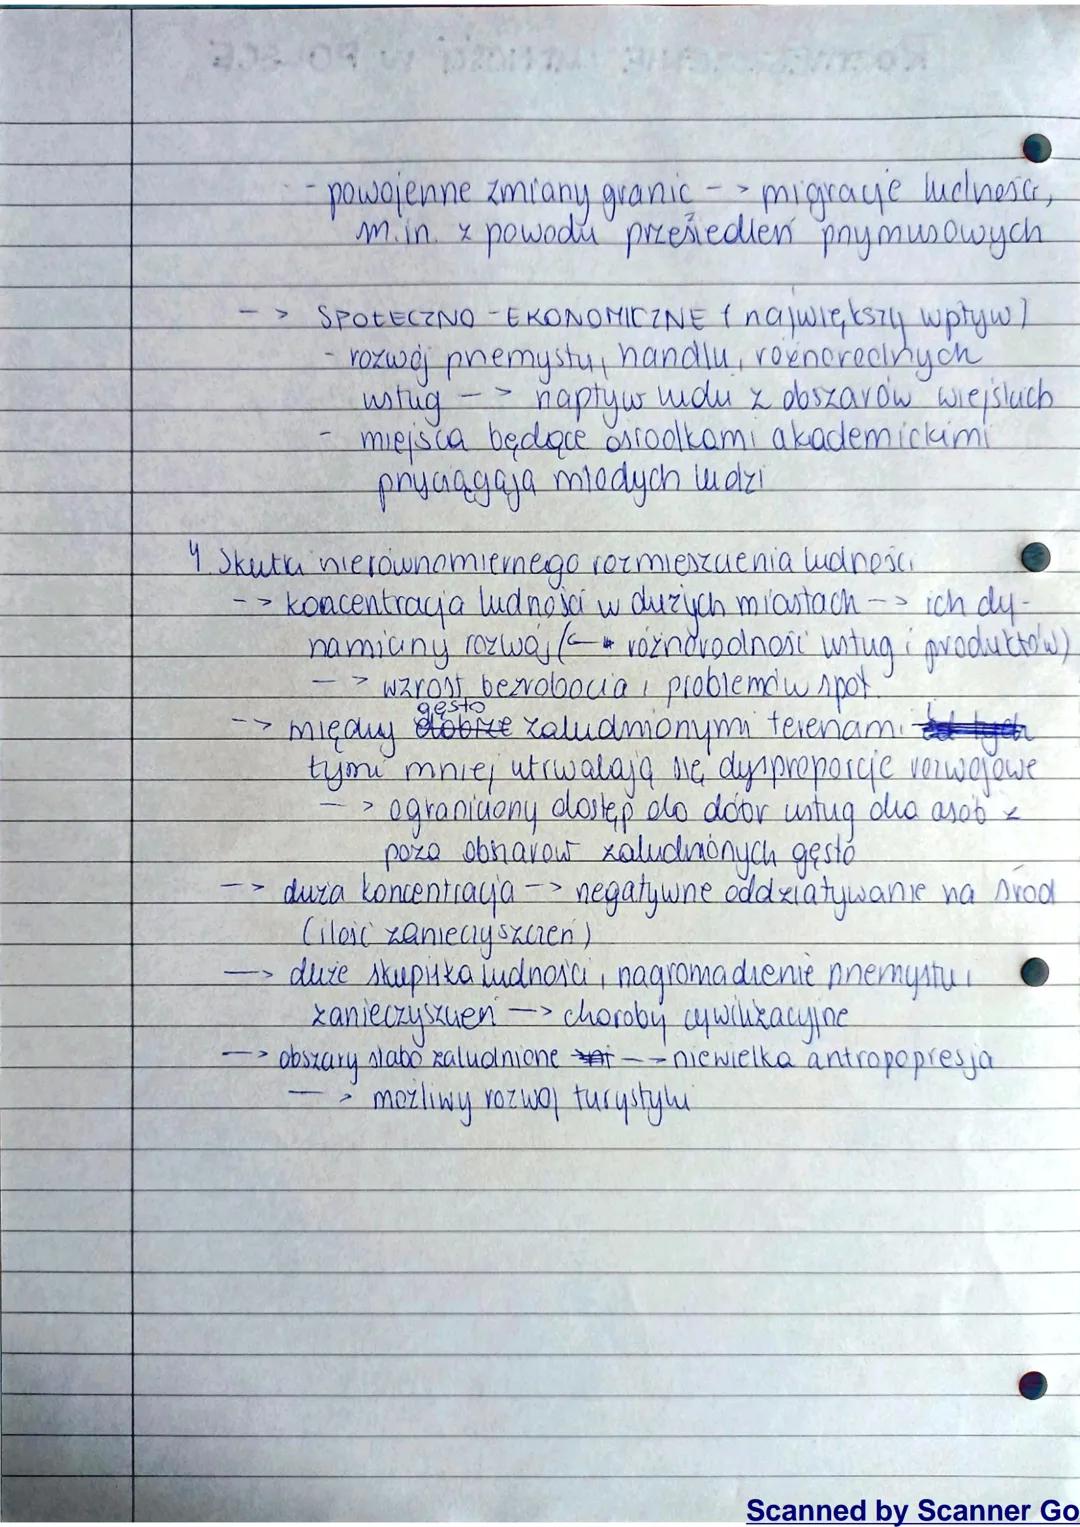 - powojenne zmiany granic --> migracje ludności,
m.in. z powodu przesiedleń przymusowych
--> SPOŁECZNO-EKONOMICZNE (największy wpływ)
- rozwój przemysłu, handlu, różnorodnych
usług --> napływ ludu z obszarów wiejskich
- miejsca będące ośrodkami akademickimi
przyciągają młodych ludzi
4. Skutki nierównomiernego rozmieszczenia ludności
--> koncentracja ludności w dużych miastach --> ich dy-
namiczny rozwój (<- różnorodność usług i produktów)
--> wzrost bezrobocia i problemów społ.
gęsto
--> między dobrze zaludnionymi terenami od tych
tymi mniej utrwalają się dysproporcje rozwojowe
--> ograniczony dostęp do dóbr usług dla osób z
poza obszarów zaludnionych gęsto
--> duża koncentracja --> negatywne oddziaływanie na środ
(ilość zanieczyszczeń)
--> duże skupiska ludności, nagromadzenie przemysłu i
zanieczyszczeń --> choroby cywilizacyjne
--> obszary słabo zaludnione --> niewielka antropopresja
--> możliwy rozwój turystyki
Scanned by Scanner Go